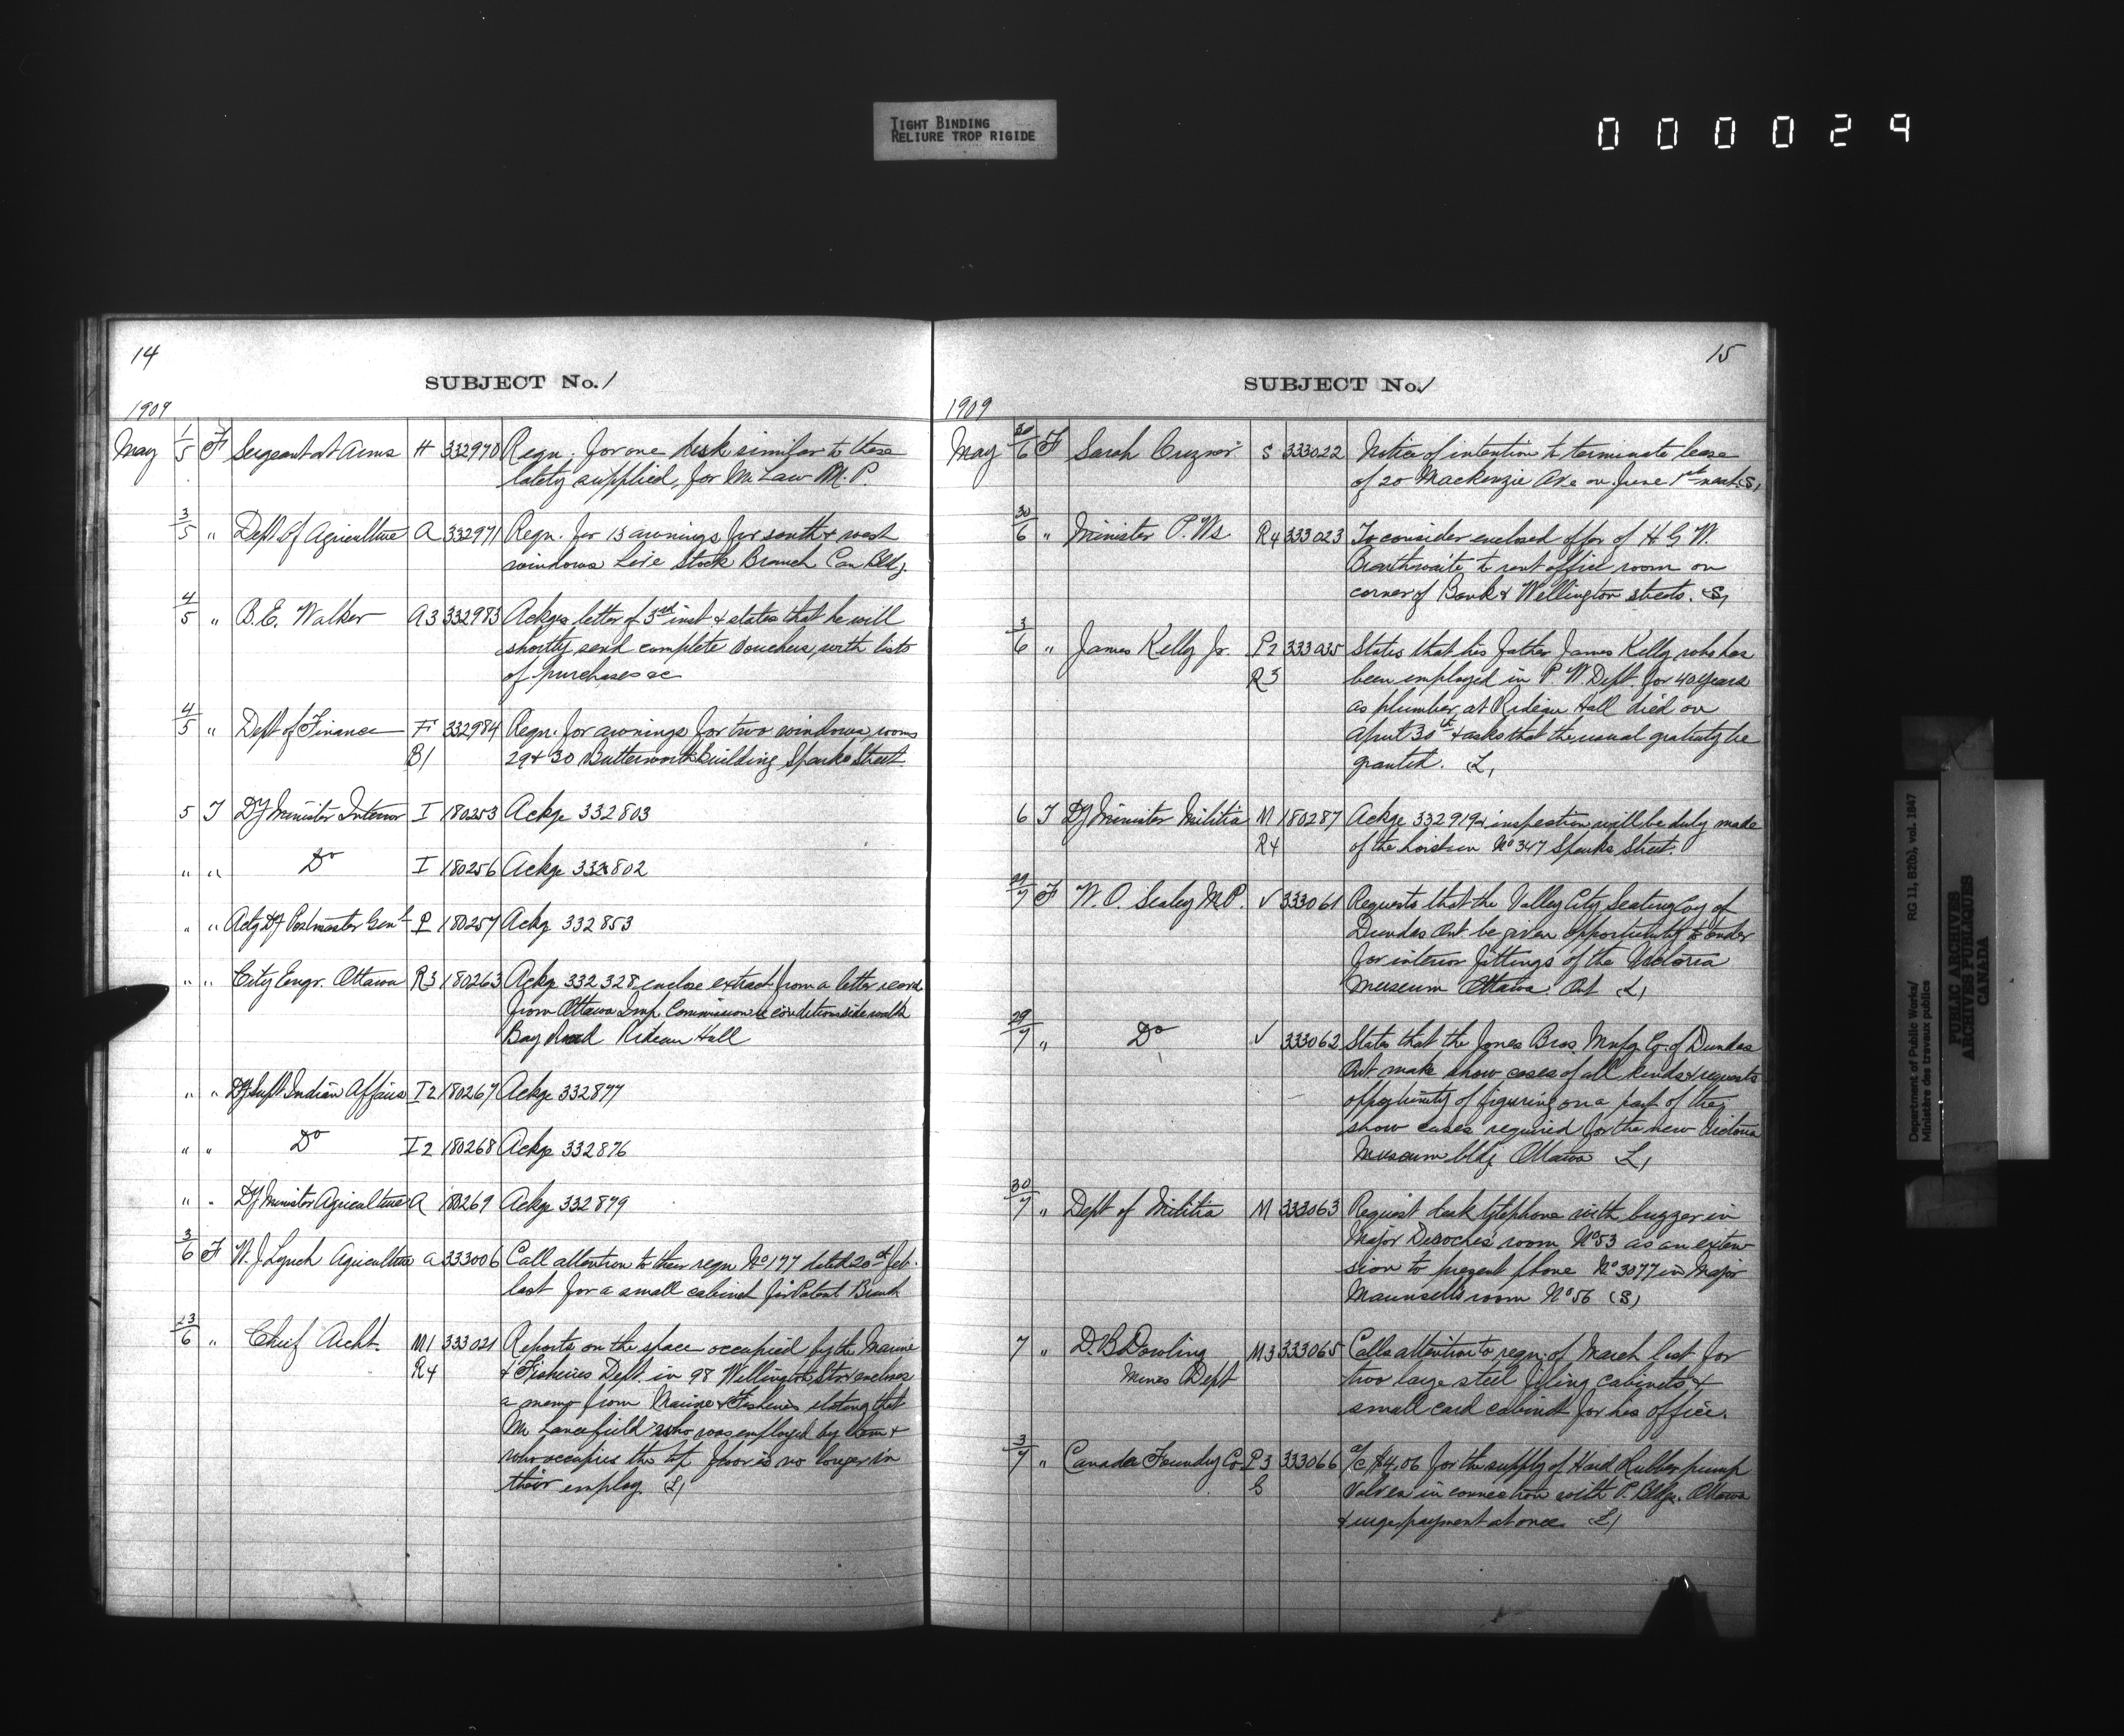 TIGHT BINDING
RELIURE TROP RIGIDE
000029
14
SUBJECT No. 1
1909
May 1/5 F Sergeant at Arms H 332970 Reqn. for one desk similar to those
lately supplied, for Mr Law M.P.
3/5 " Dept of Agriculture A 332971 Reqn. for 13 awnings for south & west
windows Live Stock Branch Can Bldg.
4/5 " B.E. Walker A3 332983 Ackges letter of 3rd inst & states that he will
shortly send complete vouchers, with lists
of purchases &c
4/5 " Dept of Finance F 332984 Reqn. for awnings for two windows, rooms
B1 29 & 30 Butterworth Building Sparks Street.
5 T Dy Minister Interior I 180253 Ackge 332803
" " Do I 180256 Ackge 332802
" " Actg Dy Postmaster Genl P 180257 Ackg 332853
" " City Engr. Ottawa R3 180263 Ackge 332328 enclose extract from a letter recvd
from Ottawa Imp. Commission re condition sidewalk
Bay Road Rideau Hall
" " Dy Supt. Indian Affairs I2 180267 Ackge 332877
" " Do I2 180268 Ackge 332876
" " Dy Minister Agriculture A 180269 Ackge 332879
3/6 F W. J. Lynch Agriculture A 333006 Call attention to their reqn No 177 dated 20th Feb.
last for a small cabinet for Patent Branch
23/6 " Chief Archt. M1 333021 Reports on the space occupied by the Marine
R4 & Fisheries Dept. in 98 Wellington St. & encloses
a memo from Marine & Fisheries stating that
Mr Lancefield who was employed by them &
who occupies the top floor is no longer in
their employ. L1
15
SUBJECT No. 1
1909
May 30/6 F Sarah Cuzner S 333022 Notice of intention to terminate lease
of 20 Mackenzie Ave on June 1st next. S1
30/6 " Minister P. Ws R4 333023 To consider enclosed offer of H. G. W.
Braithwaite to rent office room on
corner of Bank & Wellington streets. S1
3/6 " James Kelly Jr. P2 333035 States that his father James Kelly who has
R3 been employed in P. W. Dept. for 40 years
as plumber at Rideau Hall died on
April 30th & asks that the usual gratuity be
granted. L1
6 T Dy Minister Militia M 180287 Ackge 332919 & inspection will be duly made
R4 of the hoist in No 347 Sparks Street.
29/7 F W. O. Sealey M.P. V 333061 Requests that the Valley City Seating Coy of
Dundas Ont. be given opportunity to tender
for interior fittings of the Victoria
Museum Ottawa. Ont L1
29/7 " Do V 333062 States that the Jones Bros. Mnfg. Co. of Dundas
Ont. make show cases of all kinds & requests
opportunity of figuring on a part of the
show cases required for the new Victoria
Museum bldg Ottawa L1
30/7 " Dept of Militia M 333063 Request desk telephone with buzzer in
Major Desroches' room No 53 as an exten-
sion to present phone No 3077 in Major
Maunsell's room No 56 (S)
7 " D. B. Dowling M3 333065 Calls attention to reqn. of March last for
Mines Dept two large steel filing cabinets &
small card cabinet for his office.
3/7 " Canada Foundry Co. P3 333066 a/c $4.06 for the supply of Hard Rubber pump
G valves in connection with P. Bldgs. Ottawa
& urge payment at once. L1
Department of Public Works/
Ministère des travaux publics
RG 11, B2(b), vol. 1847
PUBLIC ARCHIVES
ARCHIVES PUBLIQUES
CANADA